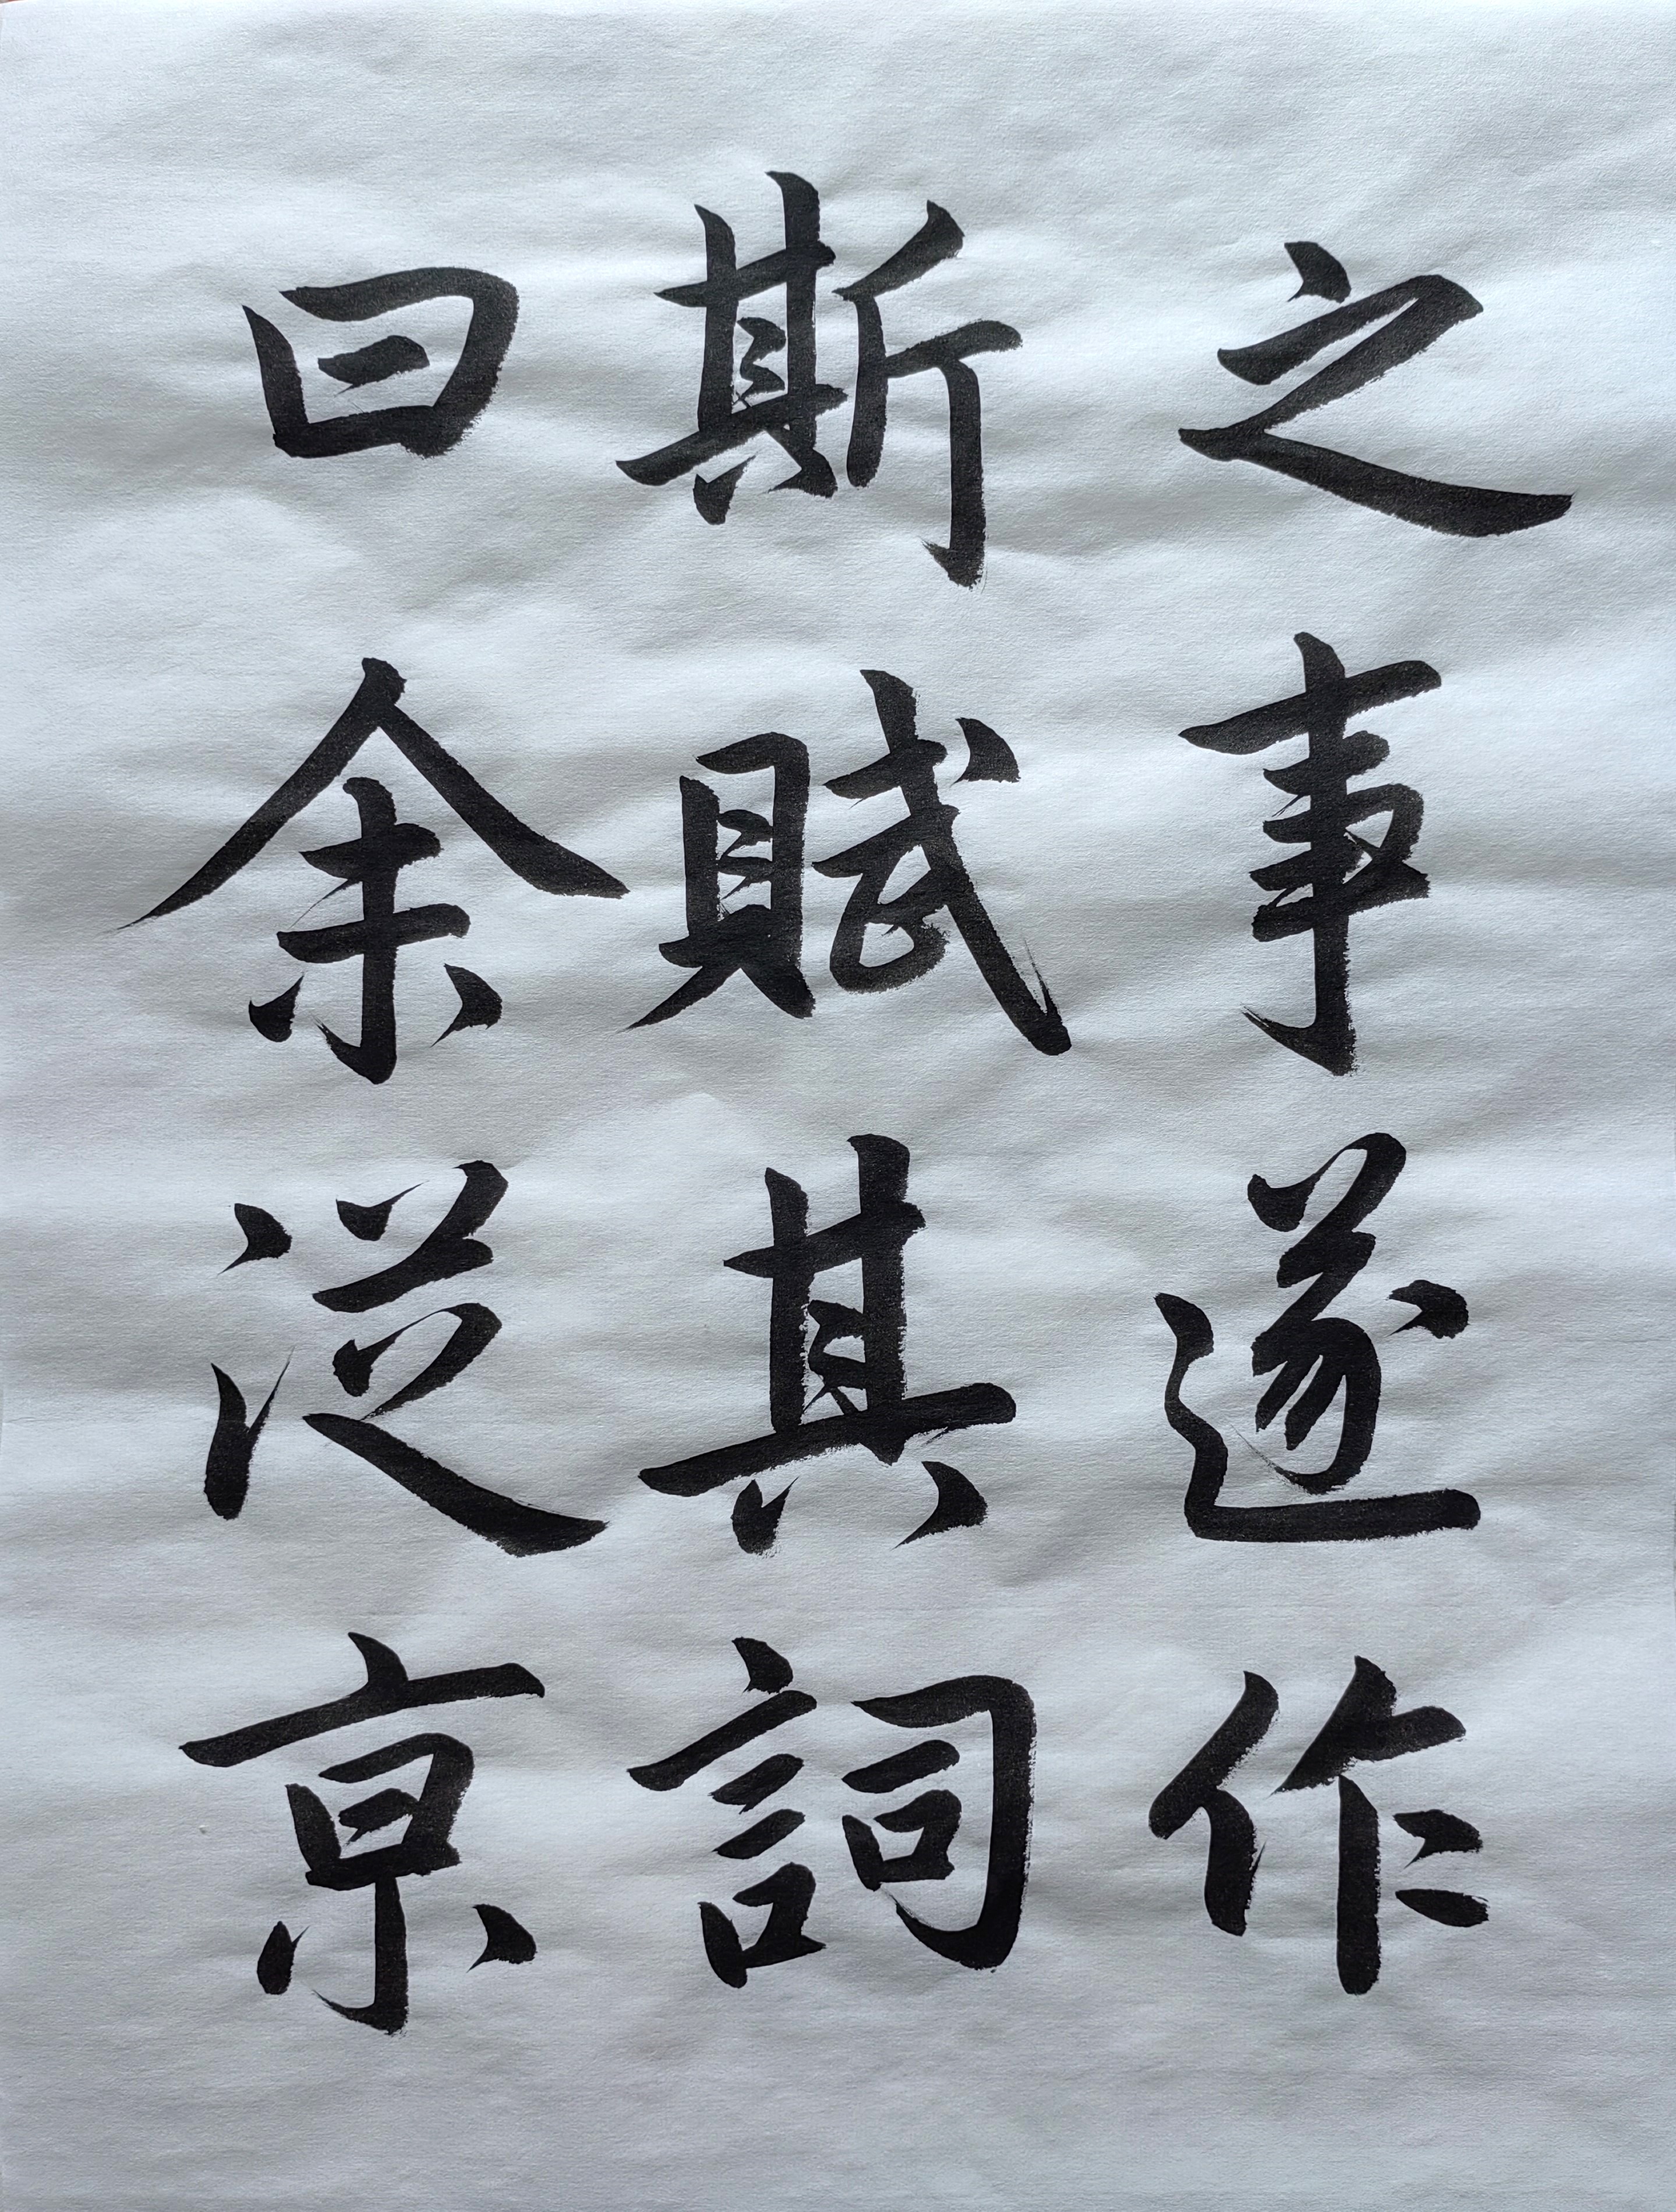 之事遂作
斯賦其詞
曰余從京